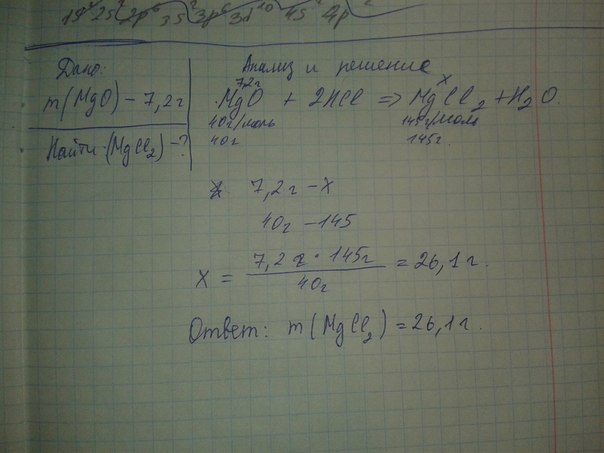 1s² 2s² 2p⁶ 3s² 3p⁶ 3d¹⁰ 4s² 4p²
Дано:
m(MgO) – 7,2г
Найти: (MgCl₂) – ?
Анализ и решение
7,2г x
MgO + 2HCl => MgCl₂ + H₂O.
40г/моль 145г/моль
40г 145г.
7,2г – x
40г – 145
x = 7,2г · 145г / 40г = 26,1г.
Ответ: m(MgCl₂) = 26,1г.